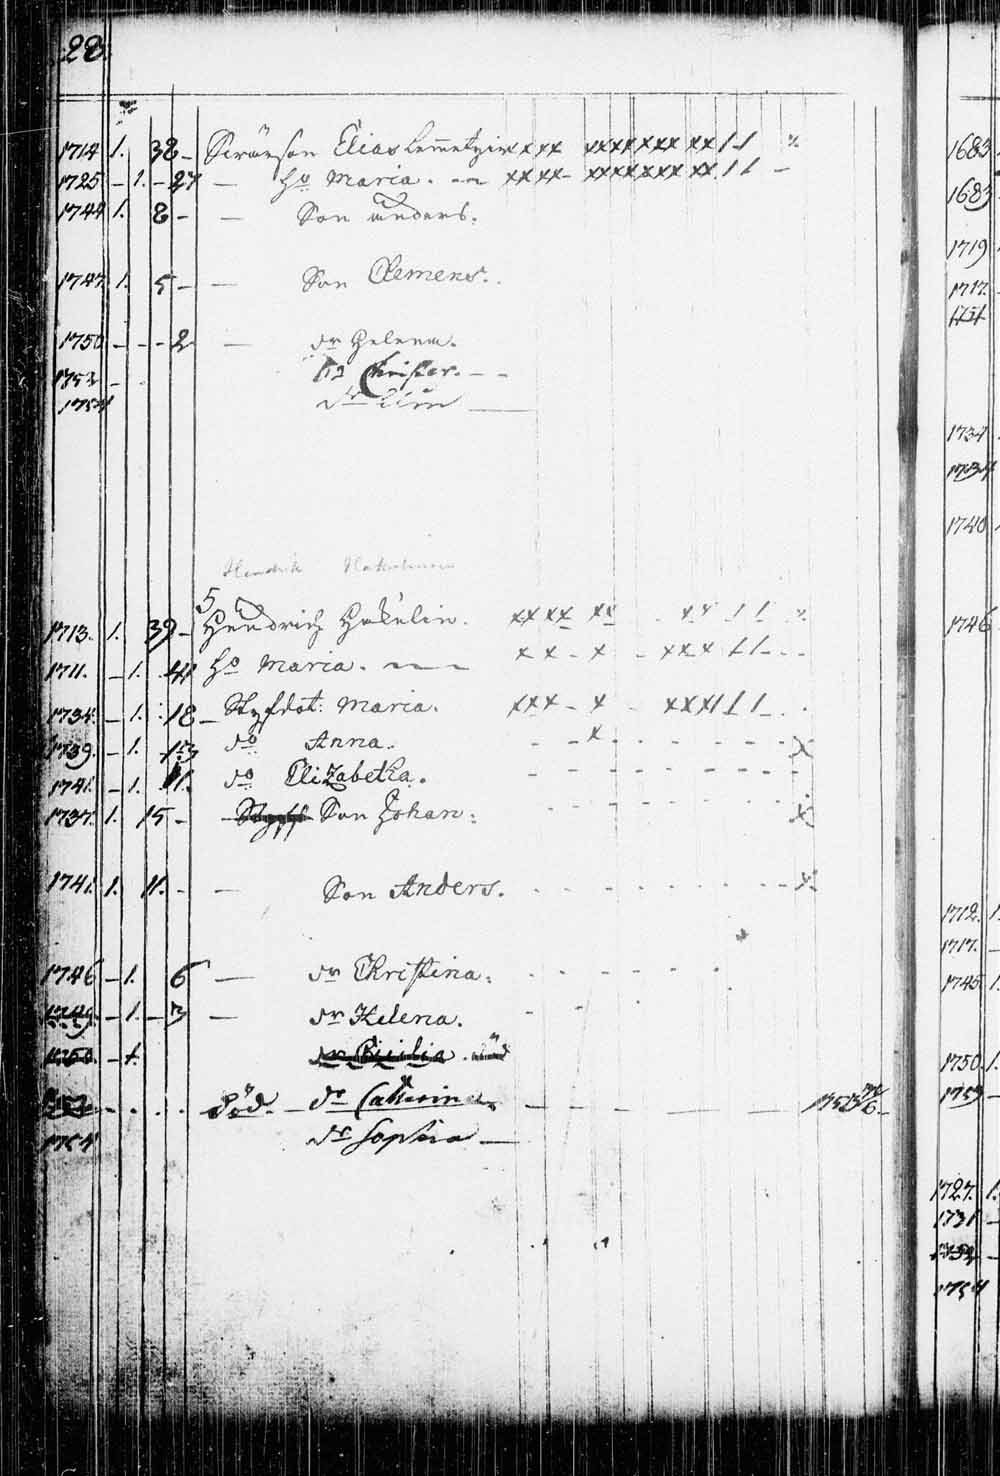 28.
1714 1. 38 - Svärson Elias Lemmetyin xx xx xxxxxxx xx 1 1
1725 - 1. - 27 - Ho Maria. xx xx - xxxxxxx xx 1 1 -
1744 1. 8 - - Son Anders.
1747 1. 5 - - Son Clemens.
1750 - - - 2 - dr Helena.
1752 - Christer. - -
1754 dr
Hendrik
5
1713. 1. 39 - Hendrich Hakulin. xx xx xx xx 1 1
1711. - 1. 41 Ho Maria. x x - x - xxx 1 1 - - -
1734. - 1. 18 - Styfdot: Maria. xxx - x xxx 1 1 -
1739. - 1. 13 do Anna. - - x - - - - - x
1741. - 1. 11. do Elizabetha.
1737. 1. 15 - Styff Son Johan: x
1741. 1. 11. - - Son Anders. x
1746 - 1. 6 - dr Christina.
1749. - 1. - 3 - dr Helena.
1750. - 1. dr Cicilia.
1752 - - - - Död. - dr Catharina. 1752
1754 dr Sophia -
1683
1683
1719
1717.
1734
1734
1740
1746
1712. 1
1717.
1745 1.
1750. 1.
1759
1727. 1.
1731 -
1754